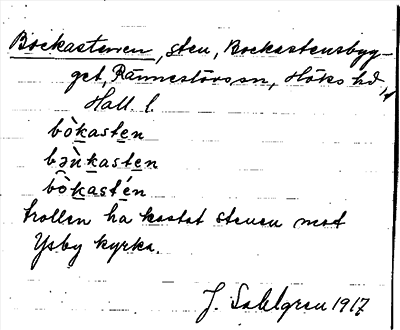 Bockastenen, sten, Bockastensbyg-
get, Rännestörs sn, Höks hd,
Hall. l.
bòkasten
bənkasten
bòkastén
trollen ha kastat stenen mot
Ysby kyrka.
J. Sahlgren 1917